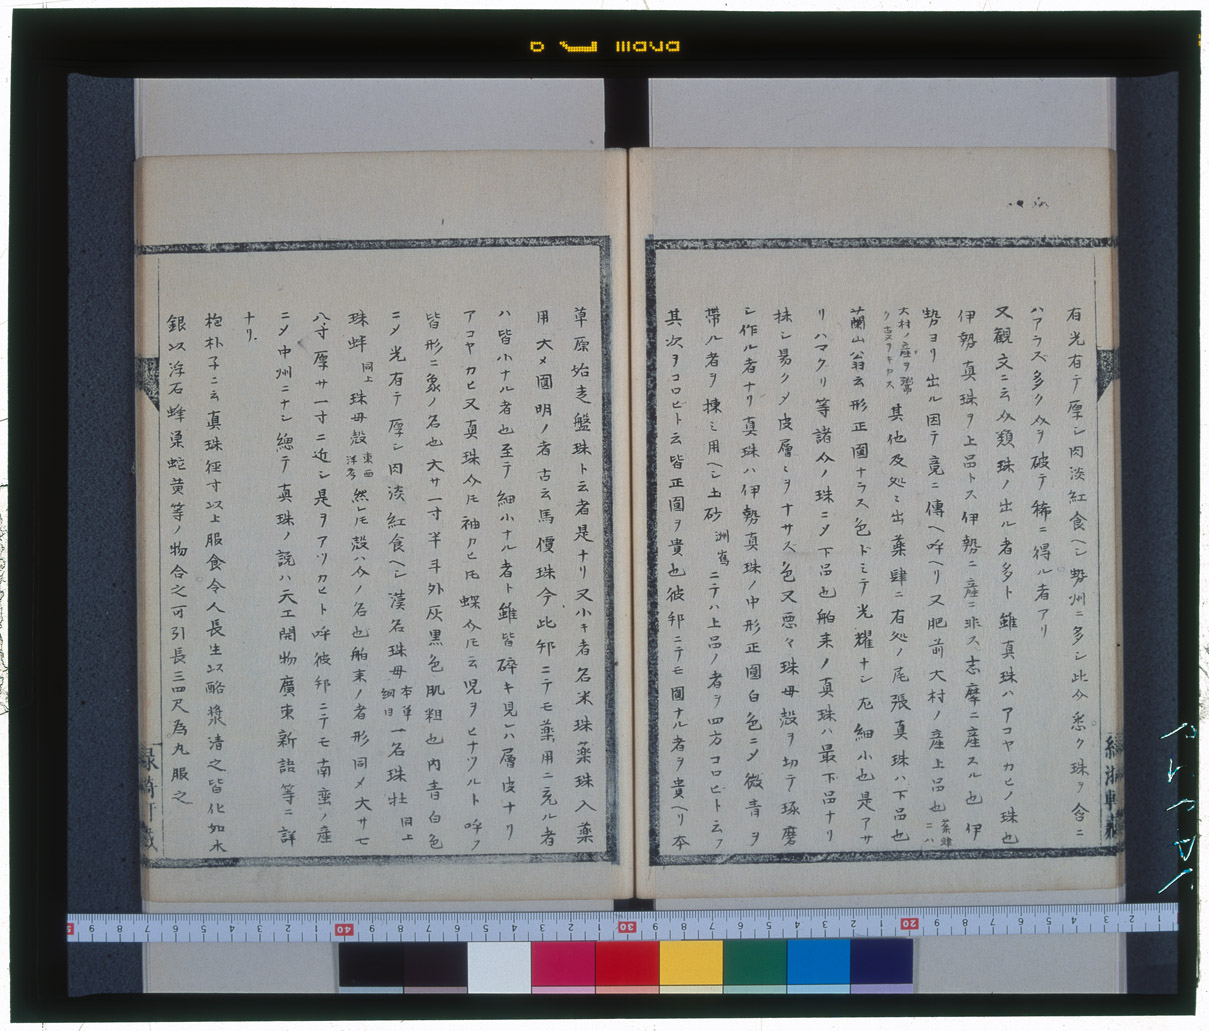 有光有テ厚シ肉淡紅食ヘシ勢州ニ多シ此介悉ク珠ヲ含ニ
ハアラズ多ク介ヲ破テ稀ニ得ル者アリ
又観文ニ云介類珠ノ出ル者多ト雖真珠ハアコヤカヒノ珠也
伊勢真珠ヲ上品トス伊勢ニ産ニ非ス志摩ニ産スル也伊
勢ヨリ出ル因テ竟ニ傳ヘ呼ヘリ又肥前大村ノ産上品也
大村ノ産ヲ
其他及処ミ出薬肆ニ有処ノ尾張真珠ハ下品也
蘭山翁云形正圓ナラス色ドミテ光耀ナシ尤細小也是アサ
リハマグリ等諸介ノ珠ニメ下品也舶来ノ真珠ハ最下品ナリ
抹シ易クメ皮層ミヲナサズ色又悪々珠母殻ヲ切テ琢磨
シ作ル者ナリ真珠ハ伊勢真珠ノ中形正圓白色ニメ微青ヲ
帯ル者ヲ揀ミ用ヘシ土砂
ニテハ上品ノ者ヲ四方コロビト云フ
其次ヲコロビト云皆正圓ヲ貴也彼邦ニテモ圓ナル者ヲ貴ヘリ本
草原始走盤珠ト云者是ナリ又小キ者名米珠薬珠入薬
用大メ圓明ノ者古云馬價珠今此邦ニテモ薬用ニ充ル者
ハ皆小ナル者也至テ細小ナル者ト雖皆碎キ見レハ層皮ナリ
アコヤカヒ又真珠介圧袖カヒ圧蝶介圧云児ヲヒナヅルト呼フ
皆形ニ象ノ名也大サ一寸半斗外灰黒色肌粗也内青白色
ニメ光有テ厚シ肉淡紅食ヘシ漢名珠母
本草
綱目
一名珠牡
同上
珠蚌
同上
珠母殻
東西
洋考
然レ圧殻ハ介ノ名也舶来ノ者形同メ大サ七
八寸厚サ一寸ニ近シ是ヲアツカヒト呼彼邦ニテモ南蛮ノ産
ニメ中州ニナシ總テ真珠ノ説ハ天工開物廣東新語等ニ詳
ナリ
抱朴子ニ云真珠徑寸以上服食令人長生以酪漿漬之皆化如水
銀以浮石蜂巣蛇黄等ノ物合之可引長三四尺為丸服之